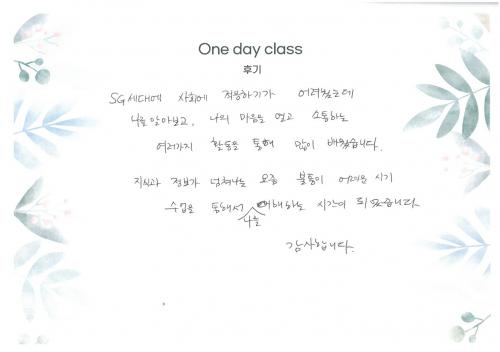 One day class
후기
5G세대에 사회에 적응하기가 어려웠는데
나를 알아보고, 나의 마음을 열고 소통하는
여러가지 활동을 통해 많이 배웠습니다.
지식과 정보가 넘쳐나는 요즘 불통이 어려운 시기
수업을 통해서 나를 이해하는 시간이 되었습니다
감사합니다.